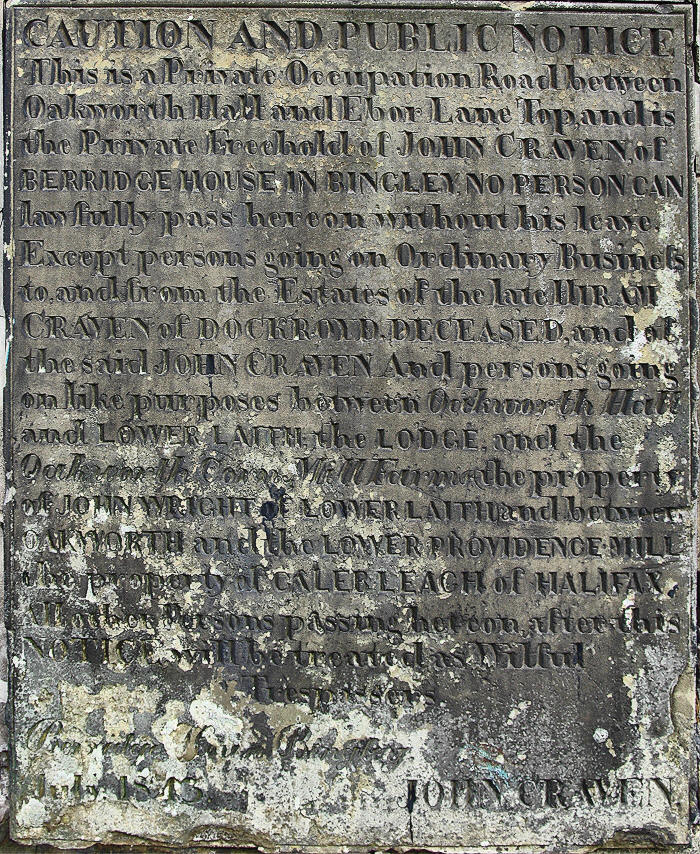 CAUTION AND PUBLIC NOTICE
This is a Private Occupation Road between
Oakworth Hall and Ebor Lane Top, and is
the Private Freehold of JOHN CRAVEN, of
BERRIDGE HOUSE, IN BINGLEY, NO PERSON CAN
lawfully pass hereon without his leave.
Except persons going on Ordinary Business
to, and from the Estates of the late HIRAM
CRAVEN of DOCKROYD, DECEASED, and of
the said JOHN CRAVEN And persons going
on like purposes between Oakworth Hall
and LOWER LAITH, the LODGE, and the
Oakworth Corn Mill Farms, the property
of JOHN WRIGHT of LOWER LAITH and between
OAKWORTH and the LOWER PROVIDENCE MILL
the property of CALEB LEACH of HALIFAX.
All other Persons passing hereon, after this
NOTICE, will be treated as Wilful
Trespassers.
July. 1843.
JOHN CRAVEN.